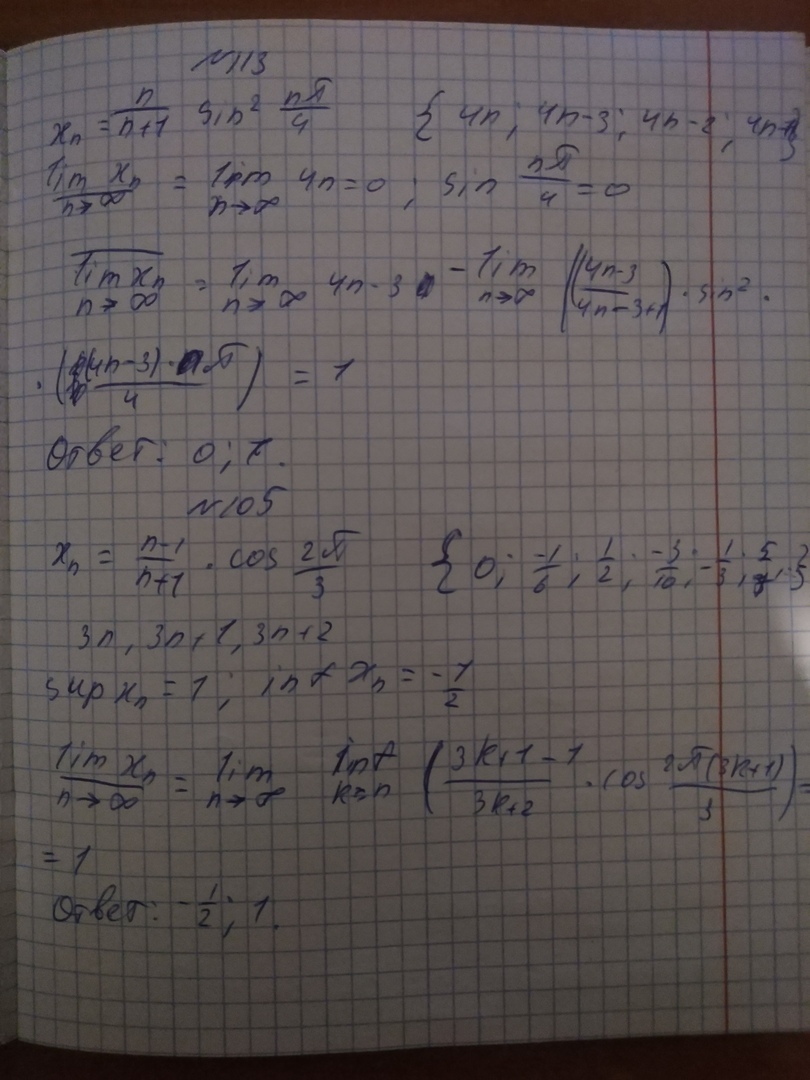 №113
xₙ = n/(n+1) sin² nπ/4 { 4n; 4n-3; 4n-2; 4n-1}
lim xₙ (n→∞) = lim (n→∞) 4n = 0 ; sin nπ/4 = 0
lim xₙ (n→∞) = lim (n→∞) 4n-3 - lim (n→∞) ((4n-3)/(4n-3+1)) · sin² ·
· ((4n-3) · π / 4) = 1
Ответ: 0; 1.
№105
xₙ = (n-1)/(n+1) · cos 2π/3 { 0; -1/6; 1/2; -3/10; -1/3; 5/7;
3n, 3n+1, 3n+2
sup xₙ = 1 ; inf xₙ = -1/2
lim xₙ (n→∞) = lim (n→∞) inf (k≥n) ((3k+1-1)/(3k+2) · cos 2π(3k+1)/3) =
= 1
Ответ: -1/2; 1.